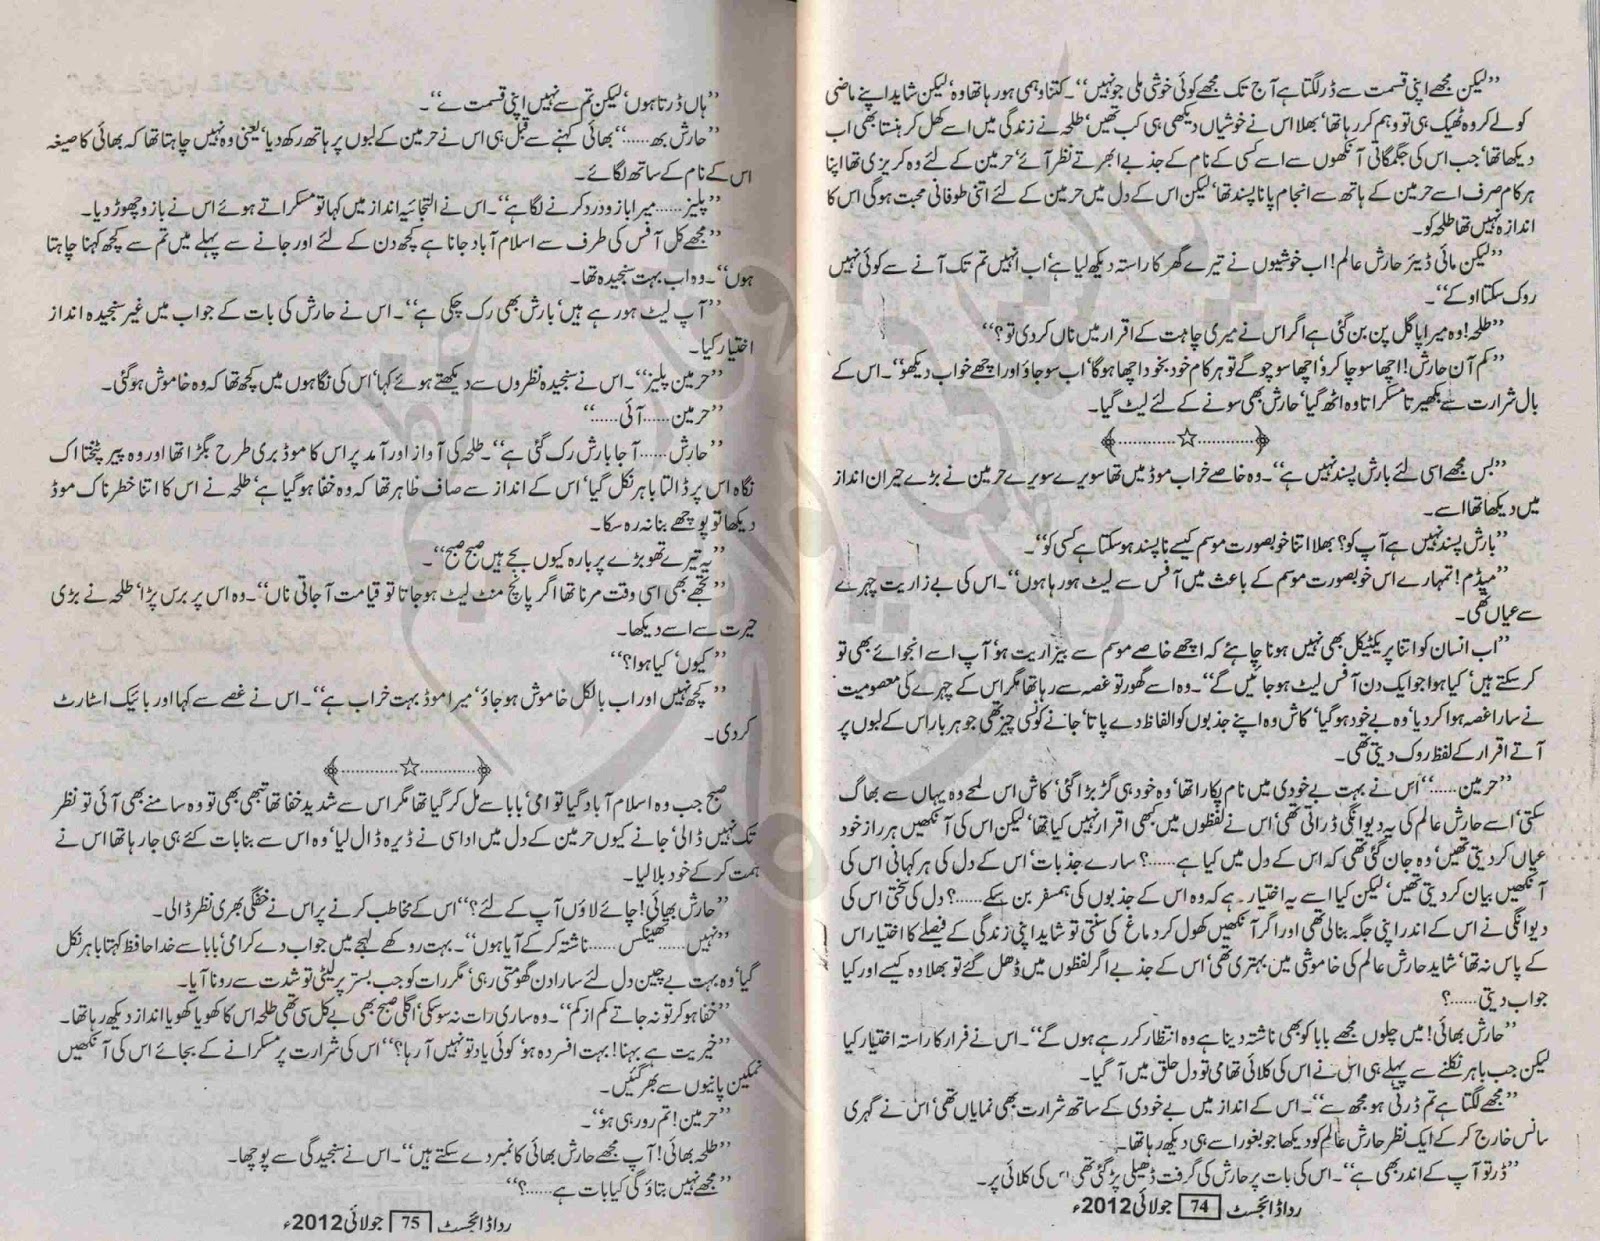 ’’لیکن مجھے اپنی قسمت سے ڈر لگتا ہے آج تک مجھے کوئی خوشی ملی جو نہیں‘‘۔ کتنا وہمی ہو رہا تھا وہ‘ لیکن شاید اپنے ماضی
کو لے کر وہ ٹھیک ہی تو وہم کر رہا تھا‘ بھلا اس نے خوشیاں دیکھی ہی کب تھیں‘ طلحہ نے زندگی میں اسے کھل کر ہنستا بھی اب
دیکھا تھا‘ جب اس کی جگمگاتی آنکھوں سے اسے کسی کے نام کے جذبے ابھرتے نظر آئے‘ حرمین کے لئے وہ کریزی تھا اپنا
ہر کام صرف اسے حرمین کے ہاتھ سے انجام پانا پسند تھا‘ لیکن اس کے دل میں حرمین کے لئے اتنی طوفانی محبت ہو گی اس کا
اندازہ نہیں تھا طلحہ کو۔
’’لیکن مائی ڈیئر حارش عالم! اب خوشیوں نے تیرے گھر کا راستہ دیکھ لیا ہے‘ اب انہیں تم تک آنے سے کوئی نہیں
روک سکتا اوکے‘‘۔
’’طلحہ! وہ میرا پاگل پن بن گئی ہے اگر اس نے میری چاہت کے اقرار میں ناں کر دی تو؟‘‘
’’کم آن حارش! اچھا سوچا کرو‘ اچھا سوچو گے تو ہر کام خود بخود اچھا ہو گا‘ اب سو جاؤ اور اچھے خواب دیکھو‘‘۔ اس کے
بال شرارت سے بکھیرتا مسکراتا وہ اٹھ گیا‘ حارش بھی سونے کے لئے لیٹ گیا۔
’’بس مجھے اسی لئے بارش پسند نہیں ہے‘‘۔ وہ خاصے خراب موڈ میں تھا سویرے سویرے حرمین نے بڑے حیران انداز
میں دیکھا تھا اسے۔
’’بارش پسند نہیں ہے آپ کو؟ بھلا اتنا خوبصورت موسم کیسے ناپسند ہو سکتا ہے کسی کو‘‘۔
’’میڈم! تمہارے اس خوبصورت موسم کے باعث میں آفس سے لیٹ ہو رہا ہوں‘‘۔ اس کی بے زاریت چہرے
سے عیاں تھی۔
’’اب انسان کو اتنا پریکٹیکل بھی نہیں ہونا چاہئے کہ اچھے خاصے موسم سے بیزاریت ہو‘ آپ اسے انجوائے بھی تو
کر سکتے ہیں‘ کیا ہوا جو ایک دن آفس لیٹ ہو جائیں گے‘‘۔ وہ اسے گھور تو غصہ سے رہا تھا مگر اس کے چہرے کی معصومیت
نے سارا غصہ ہوا کر دیا‘ وہ بے خود ہو گیا‘ کاش وہ اپنے جذبوں کو الفاظ دے پاتا‘ جانے کونسی چیز تھی جو ہر بار اس کے لبوں پر
آتے اقرار کے لفظ روک دیتی تھی۔
’’حرمین......‘‘ اس نے بہت بے خودی میں نام پکارا تھا‘ وہ خود ہی گڑبڑا گئی‘ کاش اس لمحے وہ یہاں سے بھاگ
سکتی‘ اسے حارش عالم کی یہ دیوانگی ڈراتی تھی‘ اس نے لفظوں میں کبھی اقرار نہیں کیا تھا‘ لیکن اس کی آنکھیں ہر راز خود
عیاں کر دیتی تھیں‘ وہ جان گئی تھی کہ اس کے دل میں کیا ہے......؟ سارے جذبات‘ اس کے دل کی ہر کہانی اس کی
آنکھیں بیان کر دیتی تھیں‘ لیکن کیا اسے یہ اختیار ہے کہ وہ اس کے جذبوں کی ہمسفر بن سکے......؟ دل کی سختی اس کی
دیوانگی نے اس کے اندر اپنی جگہ بنا لی تھی اور اگر آنکھیں کھول کر دماغ کی سنتی تو شاید اپنی زندگی کے فیصلے کا اختیار اس
کے پاس نہ تھا‘ شاید حارش عالم کی خاموشی میں بہتری تھی‘ اس کے جذبے اگر لفظوں میں ڈھل گئے تو بھلا وہ کیسے اور کیا
جواب دیتی......؟
’’حارش بھائی! میں چلوں مجھے بابا کو بھی ناشتہ دینا ہے وہ انتظار کر رہے ہوں گے‘‘۔ اس نے فرار کا راستہ اختیار کیا
لیکن جب باہر نکلنے سے پہلے ہی اس نے اس کی کلائی تھامی تو دل حلق میں آ گیا۔
’’مجھے لگتا ہے تم ڈرتی ہو مجھ سے‘‘۔ اس کے انداز میں بے خودی کے ساتھ شرارت بھی نمایاں تھی‘ اس نے گہری
سانس خارج کر کے ایک نظر حارش عالم کو دیکھا جو بغور اسے ہی دیکھ رہا تھا۔
’’ڈر تو آپ کے اندر بھی ہے‘‘۔ اس کی بات پر حارش کی گرفت ڈھیلی پڑ گئی تھی اس کی کلائی پر۔
ردا ڈائجسٹ 74 جولائی 2012ء
’’ہاں ڈرتا ہوں‘ لیکن تم سے نہیں اپنی قسمت سے‘‘۔
’’حارش بھ......‘‘ بھائی کہنے سے قبل ہی اس نے حرمین کے لبوں پر ہاتھ رکھ دیا‘ یعنی وہ نہیں چاہتا تھا کہ بھائی کا صیغہ
اس کے نام کے ساتھ لگائے۔
’’پلیز...... میرا بازو درد کرنے لگا ہے‘‘۔ اس نے التجائیہ انداز میں کہا تو مسکراتے ہوئے اس نے بازو چھوڑ دیا۔
’’مجھے کل آفس کی طرف سے اسلام آباد جانا ہے کچھ دن کے لئے اور جانے سے پہلے میں تم سے کچھ کہنا چاہتا
ہوں‘‘۔ وہ اب بہت سنجیدہ تھا۔
’’آپ لیٹ ہو رہے ہیں‘ بارش بھی رک چکی ہے‘‘۔ اس نے حارش کی بات کے جواب میں غیر سنجیدہ انداز
اختیار کیا۔
’’حرمین پلیز‘‘۔ اس نے سنجیدہ نظروں سے دیکھتے ہوئے کہا‘ اس کی نگاہوں میں کچھ تھا کہ وہ خاموش ہو گئی۔
’’حرمین...... آئی......‘‘
’’حارش...... آ جا بارش رک گئی ہے‘‘۔ طلحہ کی آواز اور آمد پر اس کا موڈ بری طرح بگڑا تھا اور وہ پیر پٹختا اک
نگاہ اس پر ڈالتا باہر نکل گیا‘ اس کے انداز سے صاف ظاہر تھا کہ وہ خفا ہو گیا ہے‘ طلحہ نے اس کا اتنا خطرناک موڈ
دیکھا تو پوچھے بنا نہ رہ سکا۔
’’یہ تیرے تھوبڑے پر بارہ کیوں بجے ہیں صبح صبح‘‘۔
’’تجھے بھی اسی وقت مرنا تھا اگر پانچ منٹ لیٹ ہو جاتا تو قیامت آ جاتی ناں‘‘۔ وہ اس پر برس پڑا‘ طلحہ نے بڑی
حیرت سے اسے دیکھا۔
’’کیوں‘ کیا ہوا؟‘‘
’’کچھ نہیں اور اب بالکل خاموش ہو جاؤ‘ میرا موڈ بہت خراب ہے‘‘۔ اس نے غصے سے کہا اور بائیک اسٹارٹ
کر دی۔
صبح جب وہ اسلام آباد گیا تو امی‘ بابا سے مل کر گیا تھا مگر اس سے شدید خفا تھا تبھی بھی تو وہ سامنے بھی آئی تو نظر
تک نہیں ڈالی‘ جانے کیوں حرمین کے دل میں اداسی نے ڈیرہ ڈال لیا‘ وہ اس سے بنا بات کئے ہی جا رہا تھا اس نے
ہمت کر کے خود بلا لیا۔
’’حارش بھائی! چائے لاؤں آپ کے لئے؟‘‘ اس کے مخاطب کرنے پر اس نے خفگی بھری نظر ڈالی۔
’’نہیں...... تھینکس...... ناشتہ کر کے آیا ہوں‘‘۔ بہت روکھے لہجے میں جواب دے کر امی‘ بابا سے خدا حافظ کہتا باہر نکل
گیا‘ وہ بہت بے چین دل لئے سارا دن گھومتی رہی‘ مگر رات کو جب بستر پر لیٹی تو شدت سے رونا آیا۔
’’خفا ہو کر تو نہ جاتے کم از کم‘‘۔ وہ ساری رات نہ سو سکی‘ اگلی صبح بھی بے کل سی تھی طلحہ اس کا کھویا کھویا انداز دیکھ رہا تھا۔
’’خیریت ہے بہنا! بہت افسردہ ہو‘ کوئی یاد تو نہیں آ رہا؟‘‘ اس کی شرارت پر مسکرانے کے بجائے اس کی آنکھیں
نمکین پانیوں سے بھر گئیں۔
’’حرمین! تم رو رہی ہو‘‘۔
’’طلحہ بھائی! آپ مجھے حارش بھائی کا نمبر دے سکتے ہیں‘‘۔ اس نے سنجیدگی سے پوچھا۔
’’مجھے نہیں بتاؤ گی کیا بات ہے......؟‘‘
ردا ڈائجسٹ 75 جولائی 2012ء